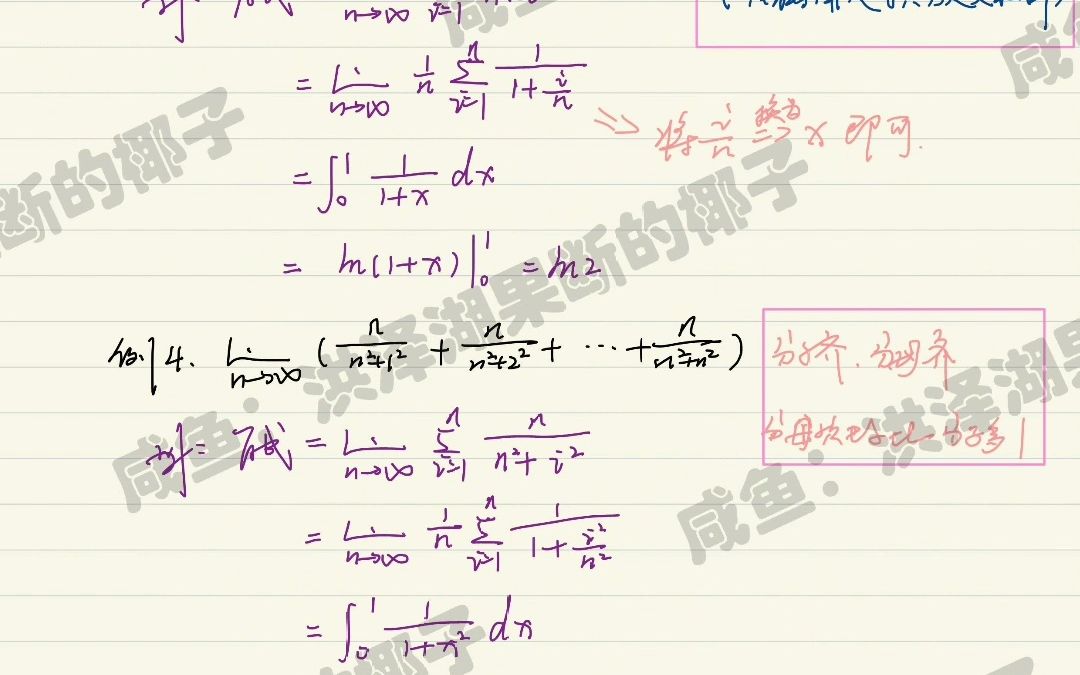 解: 原式 lim n→∞ Σ i=1
= lim n→∞ 1/n Σ i=1 n 1/(1+i/n)
⇒ 将 i/n 换为 => x 即可.
= ∫₀¹ 1/(1+x) dx
= ln(1+x)|₀¹ = ln2
例4. lim n→∞ (n/(n²+1²) + n/(n²+2²) + ⋯ + n/(n²+n²))
分子齐. 分母齐
分母次比分子多1
解: 原式 = lim n→∞ Σ i=1 n n/(n²+i²)
= lim n→∞ 1/n Σ i=1 n 1/(1+i²/n²)
= ∫₀¹ 1/(1+x²) dx
咸鱼：洪泽湖果断的椰子
咸鱼：洪泽湖果
断的椰子